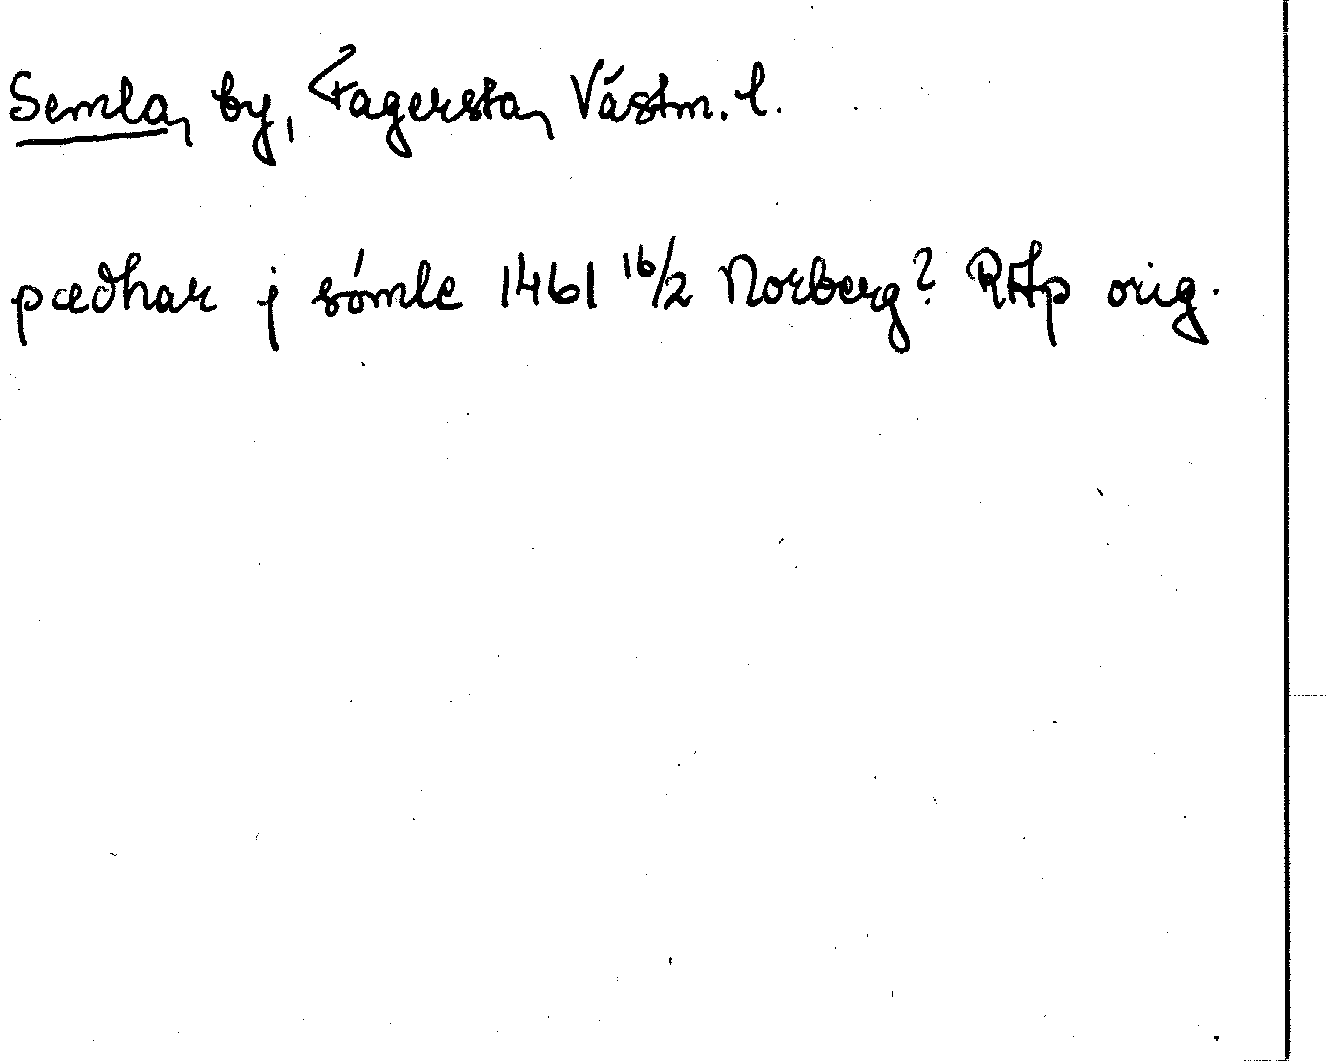 Semla, by, Fagersta, Västm. l.
pædhar j sómle 1461 16/2 Norberg? RAp orig.